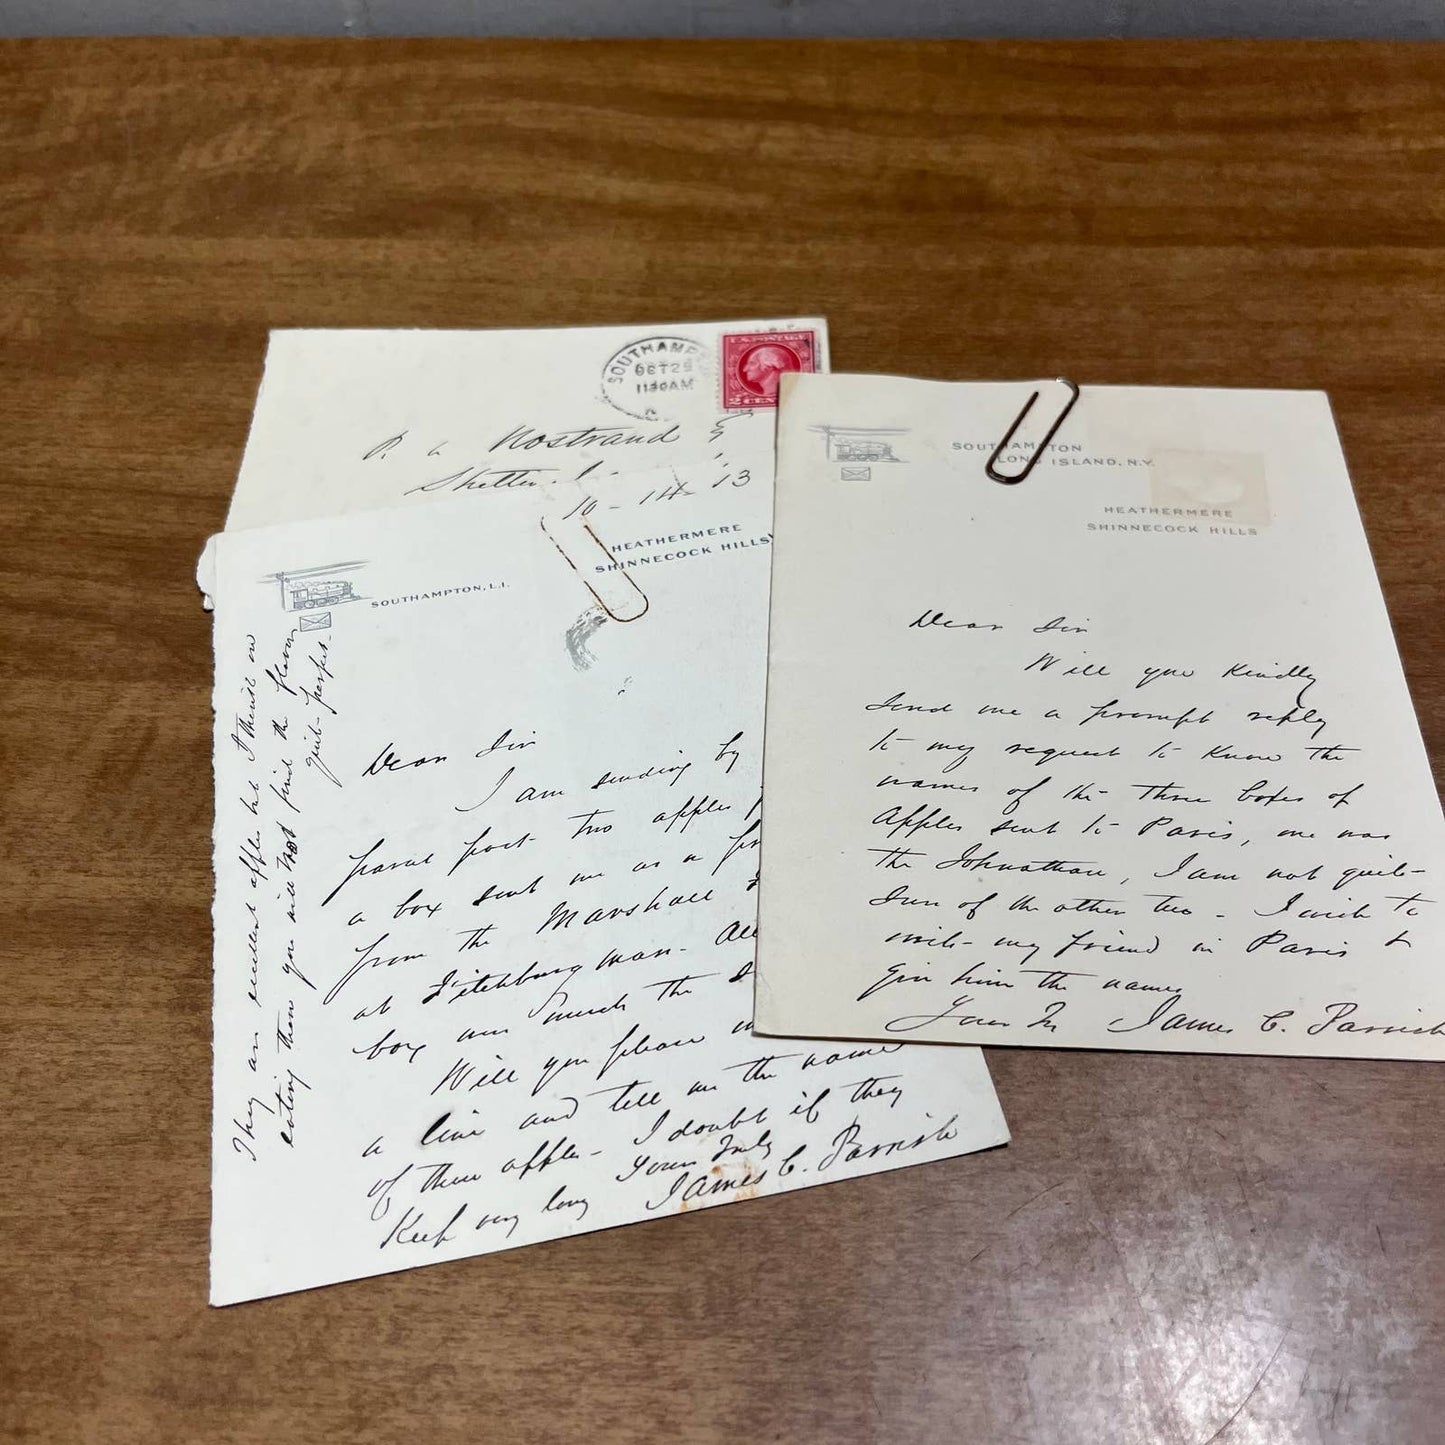 SOUTHAMPTON
OCT 29
1130AM
U.S. POSTAGE
2 CEN
Nostrand
10-14-13
SOUTHAMPTON, L.I.
HEATHERMERE
SHINNECOCK HILLS
Dear Sir
I am sending by
parcel post two apples
a box sent me as a
from the Marshall
at Fitchburg Mass. All
box was much the
Will you please
a line and tell me the name
of these apples - I doubt if they
Keep very long Yours Truly
James C. Parrish
They are excellent apples but I think on
eating them you will not find the flavor
quite perfect.
SOUTHAMPTON
LONG ISLAND, N.Y.
HEATHERMERE
SHINNECOCK HILLS
Dear Sir
Will you Kindly
Send me a prompt reply
to my request to Know the
names of the three boxes of
Apples sent to Paris, one was
the Johnathan, I am not quite
Sure of the other two - I wish to
write my friend in Paris &
give him the names
Yours Tr James C. Parrish